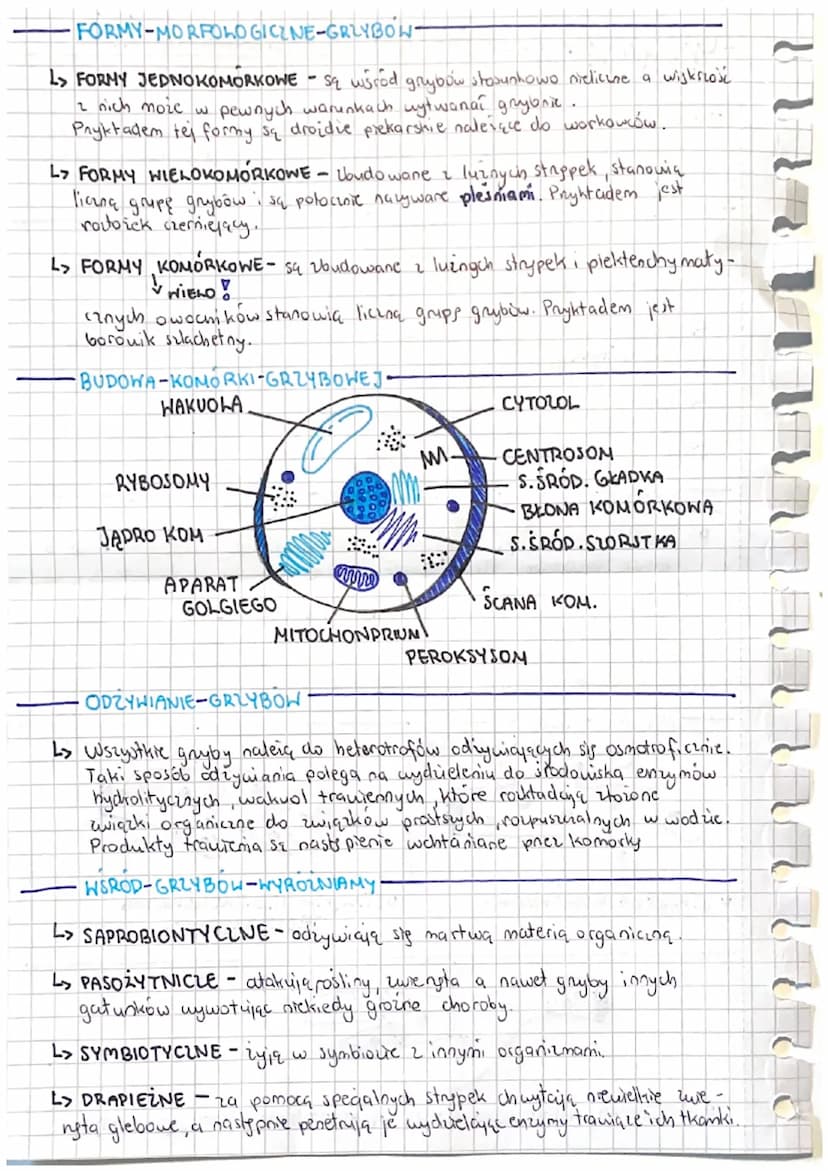 FORMY-MORFOLOGICZNE-GRZYBÓW
↳ FORMY JEDNOKOMÓRKOWE - są wśród grzybów stosunkowo nieliczne a większość
z nich może w pewnych warunkach wytwarzać grzybnię.
Przykładem tej formy są drożdże piekarskie należące do workowców.
↳ FORMY WIELOKOMÓRKOWE - zbudowane z luźnych strzępek, stanowią
liczną grupę grzybów i są potocznie nazywane pleśniami. Przykładem jest
rozłożek czerniejący.
↳ FORMY KOMÓRKOWE - są zbudowane z luźnych strzępek i plektenchymaty-
↓ WIELO!
cznych owocników stanowią liczną grupę grzybów. Przykładem jest
borowik szlachetny.
BUDOWA-KOMÓRKI-GRZYBOWEJ
WAKUOLA
CYTOZOL
CENTROSOM
RYBOSOMY
S.ŚRÓD. GŁADKA
BŁONA KOMÓRKOWA
JĄDRO KOM
S.ŚRÓD.SZORSTKA
APARAT
GOLGIEGO
ŚCANA KOM.
MITOCHONDRIUM
PEROKSYSOM
ODŻYWIANIE-GRZYBÓW
↳ Wszystkie grzyby należą do heterotrofów odżywiających się osmotroficznie.
Taki sposób odżywiania polega na wydzieleniu do środowiska enzymów
hydrolitycznych, wakuol trawiennych, które rozkładają złożone
związki organiczne do związków prostszych, rozpuszczalnych w wodzie.
Produkty trawienia są następnie wchłaniane przez komórky
WŚRÓD-GRZYBÓW-WYRÓŻNIAMY
↳ SAPROBIONTYCZNE - odżywiają się martwą materią organiczną.
↳ PASOŻYTNICZE - atakują rośliny, zwierzęta a nawet grzyby innych
gatunków wywołując niekiedy groźne choroby.
↳ SYMBIOTYCZNE - żyją w symbiozie z innymi organizmami.
↳ DRAPIEŻNE - za pomocą specjalnych strzępek chwytają niewielkie zwie-
rzęta glebowe, a następnie penetrują je wydzielając enzymy trawiące ich tkanki.